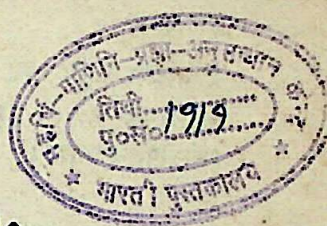 महर्षि-पाणिनि-प्रज्ञा-अनुसन्धान केन्द्र
तिथी..............
पु०सं० 1919
* भारती पुस्तकालय *